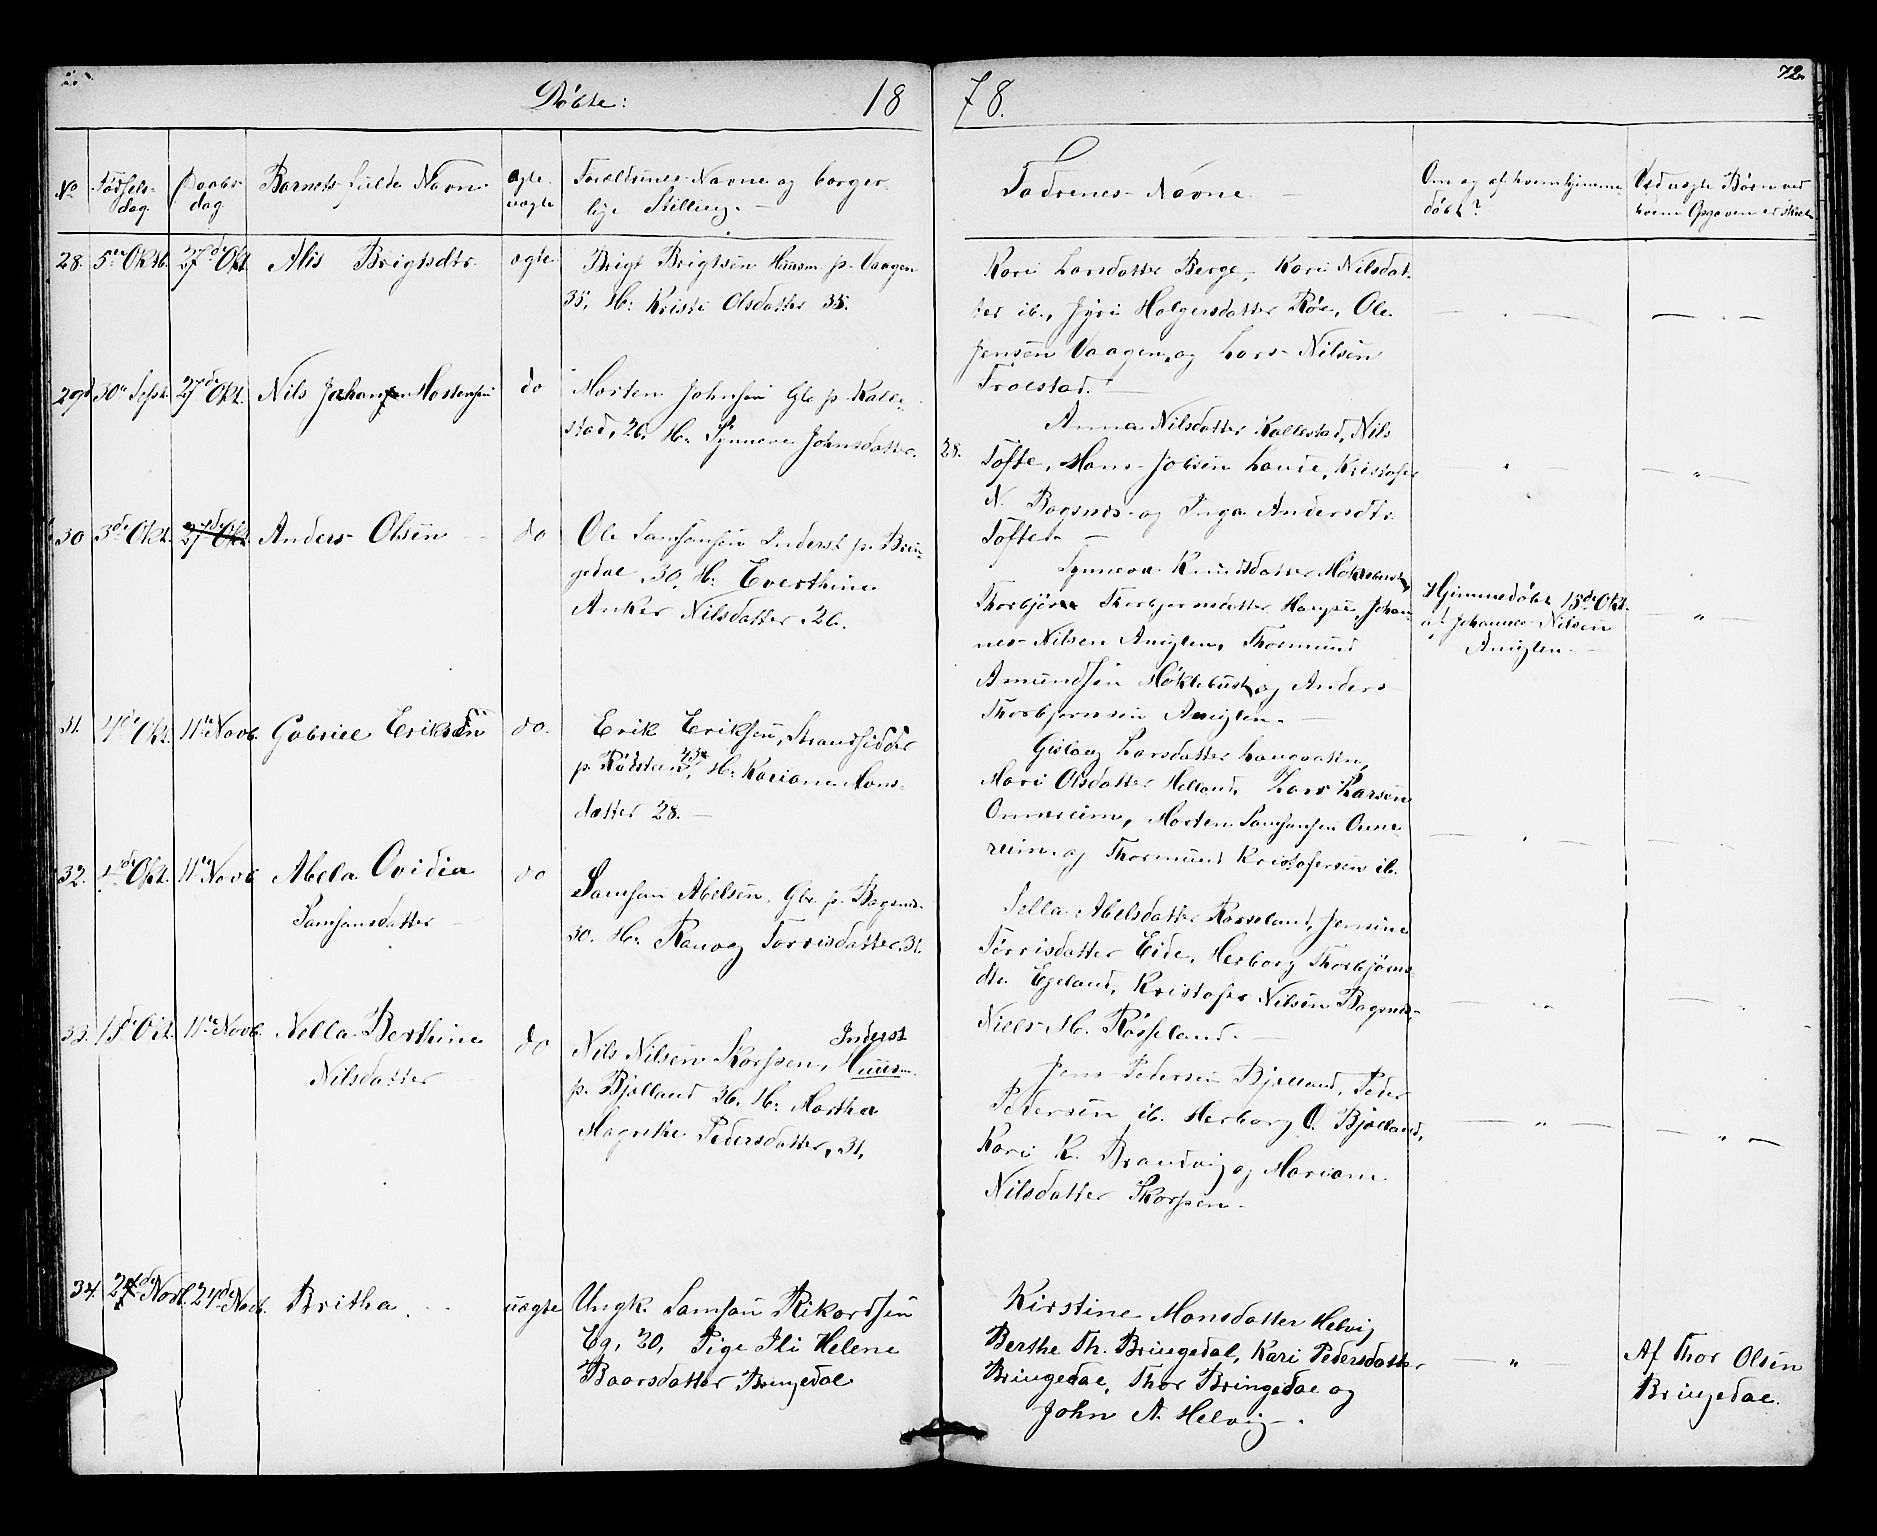 Döbte: 18 78. 72.
No Födsels-dag. Daabs-dag. Barnets fulde Navn. ægte uægte Forældrenes Navne og borger-lige Stilling. Fadrenes Navne Om og af hvem hjemme döbt? Ved uægte Börn ved hvem Opgaven er skeet
28. 5te Oktb. 27de Okt. Alis Brigtsdtr. ægte
Brigt Brigtsen Huusm. p. Vaagen
35, H: Kristi Olsdatter 35.
Kari Larsdatter Berge, Kari Nilsdat-
ter ib., Jyri Holgersdatter Röe, Ole
Jensen Vaagen, og Lars Nilsen
Troestad.
29 30te Sept. 27de Okt. Nils Johan Mortensen do
Morten Johnsen Gbr. p. Kalle-
stad, 26. H: Synneva Johnsdatter.
28.
Anna Nilsdatter Kallestad, Nils
Tofte, Mons Jobsen Lande, Kristofer
N. Bogsnes og Inga Andersdtr.
Tofte.
30 3de Okt. 27de Okt. Anders Olsen do
Ole Samsonsen Inderst p. Brin-
gedal, 30, H: Everthine
Anker Nilsdatter, 26.
Synneva Knudsdatter Möklebust,
Thorbjörn Thorbjørnsdatter Haugse, Johan-
nes Nilsen Aniglen, Thormund
Amundsen Möklebust og Anders
Thorbjørnsen Aniglen.
Hjemmedöbt 15de Okt.
af Johannes Nilsen
Aniglen.
31. 4de Okt. 11te Novb. Gabriel Eriksen do.
Erik Eriksen, Strandsidder
p. Rödsteen, H: Kariane Mons-
datter 28.
Gislaug Larsdatter
Mari Olsdatter Helland, Lars Larsen
Onnareim, Morten Samsonsen Onna
reim og Thormund Kristofersen ib.
32. 4de Okt. 11te Novb. Abela Ovidia do
Samsonsdatter
Samson Abelsen, Gbr. p. Bogsnes
30. H: Ranveg Torrisdatter, 31.
Sella Abelsdatter Rosseland, Jensine
Torrisdatter Eide, Herborg Thorbjörns-
dtr. Egeland, Kristofer Nilsen Bogsnes,
Niels M. Rosseland.
33. 15de Okt. 11te Novb. Nella Berthine do
Nilsdatter
Inderst
Nils Nilsen Skorpen, Huusm.
p. Bjolland 36. H: Martha
Magrethe Pedersdatter, 31.
Jens Pedersen Bjolland, Peder
Pedersen ib. Herborg O. Bjolland,
Kari K. Brandvig og Mariane
Nilsdatter Skorpen.
34. 24de Novb. 24de Novb. Britha. uægte
Ungk. Samson Rikardsen
Eg, 30, Pige Ili Helene
Baarsdatter Bringedal
Kirstine Monsdatter Helvig
Berthe Th. Bringedal, Kari Pedersdatter
Bringedal, Thor Bringedal og
John A. Helvig.
Af Thor Olsen
Bringedal.